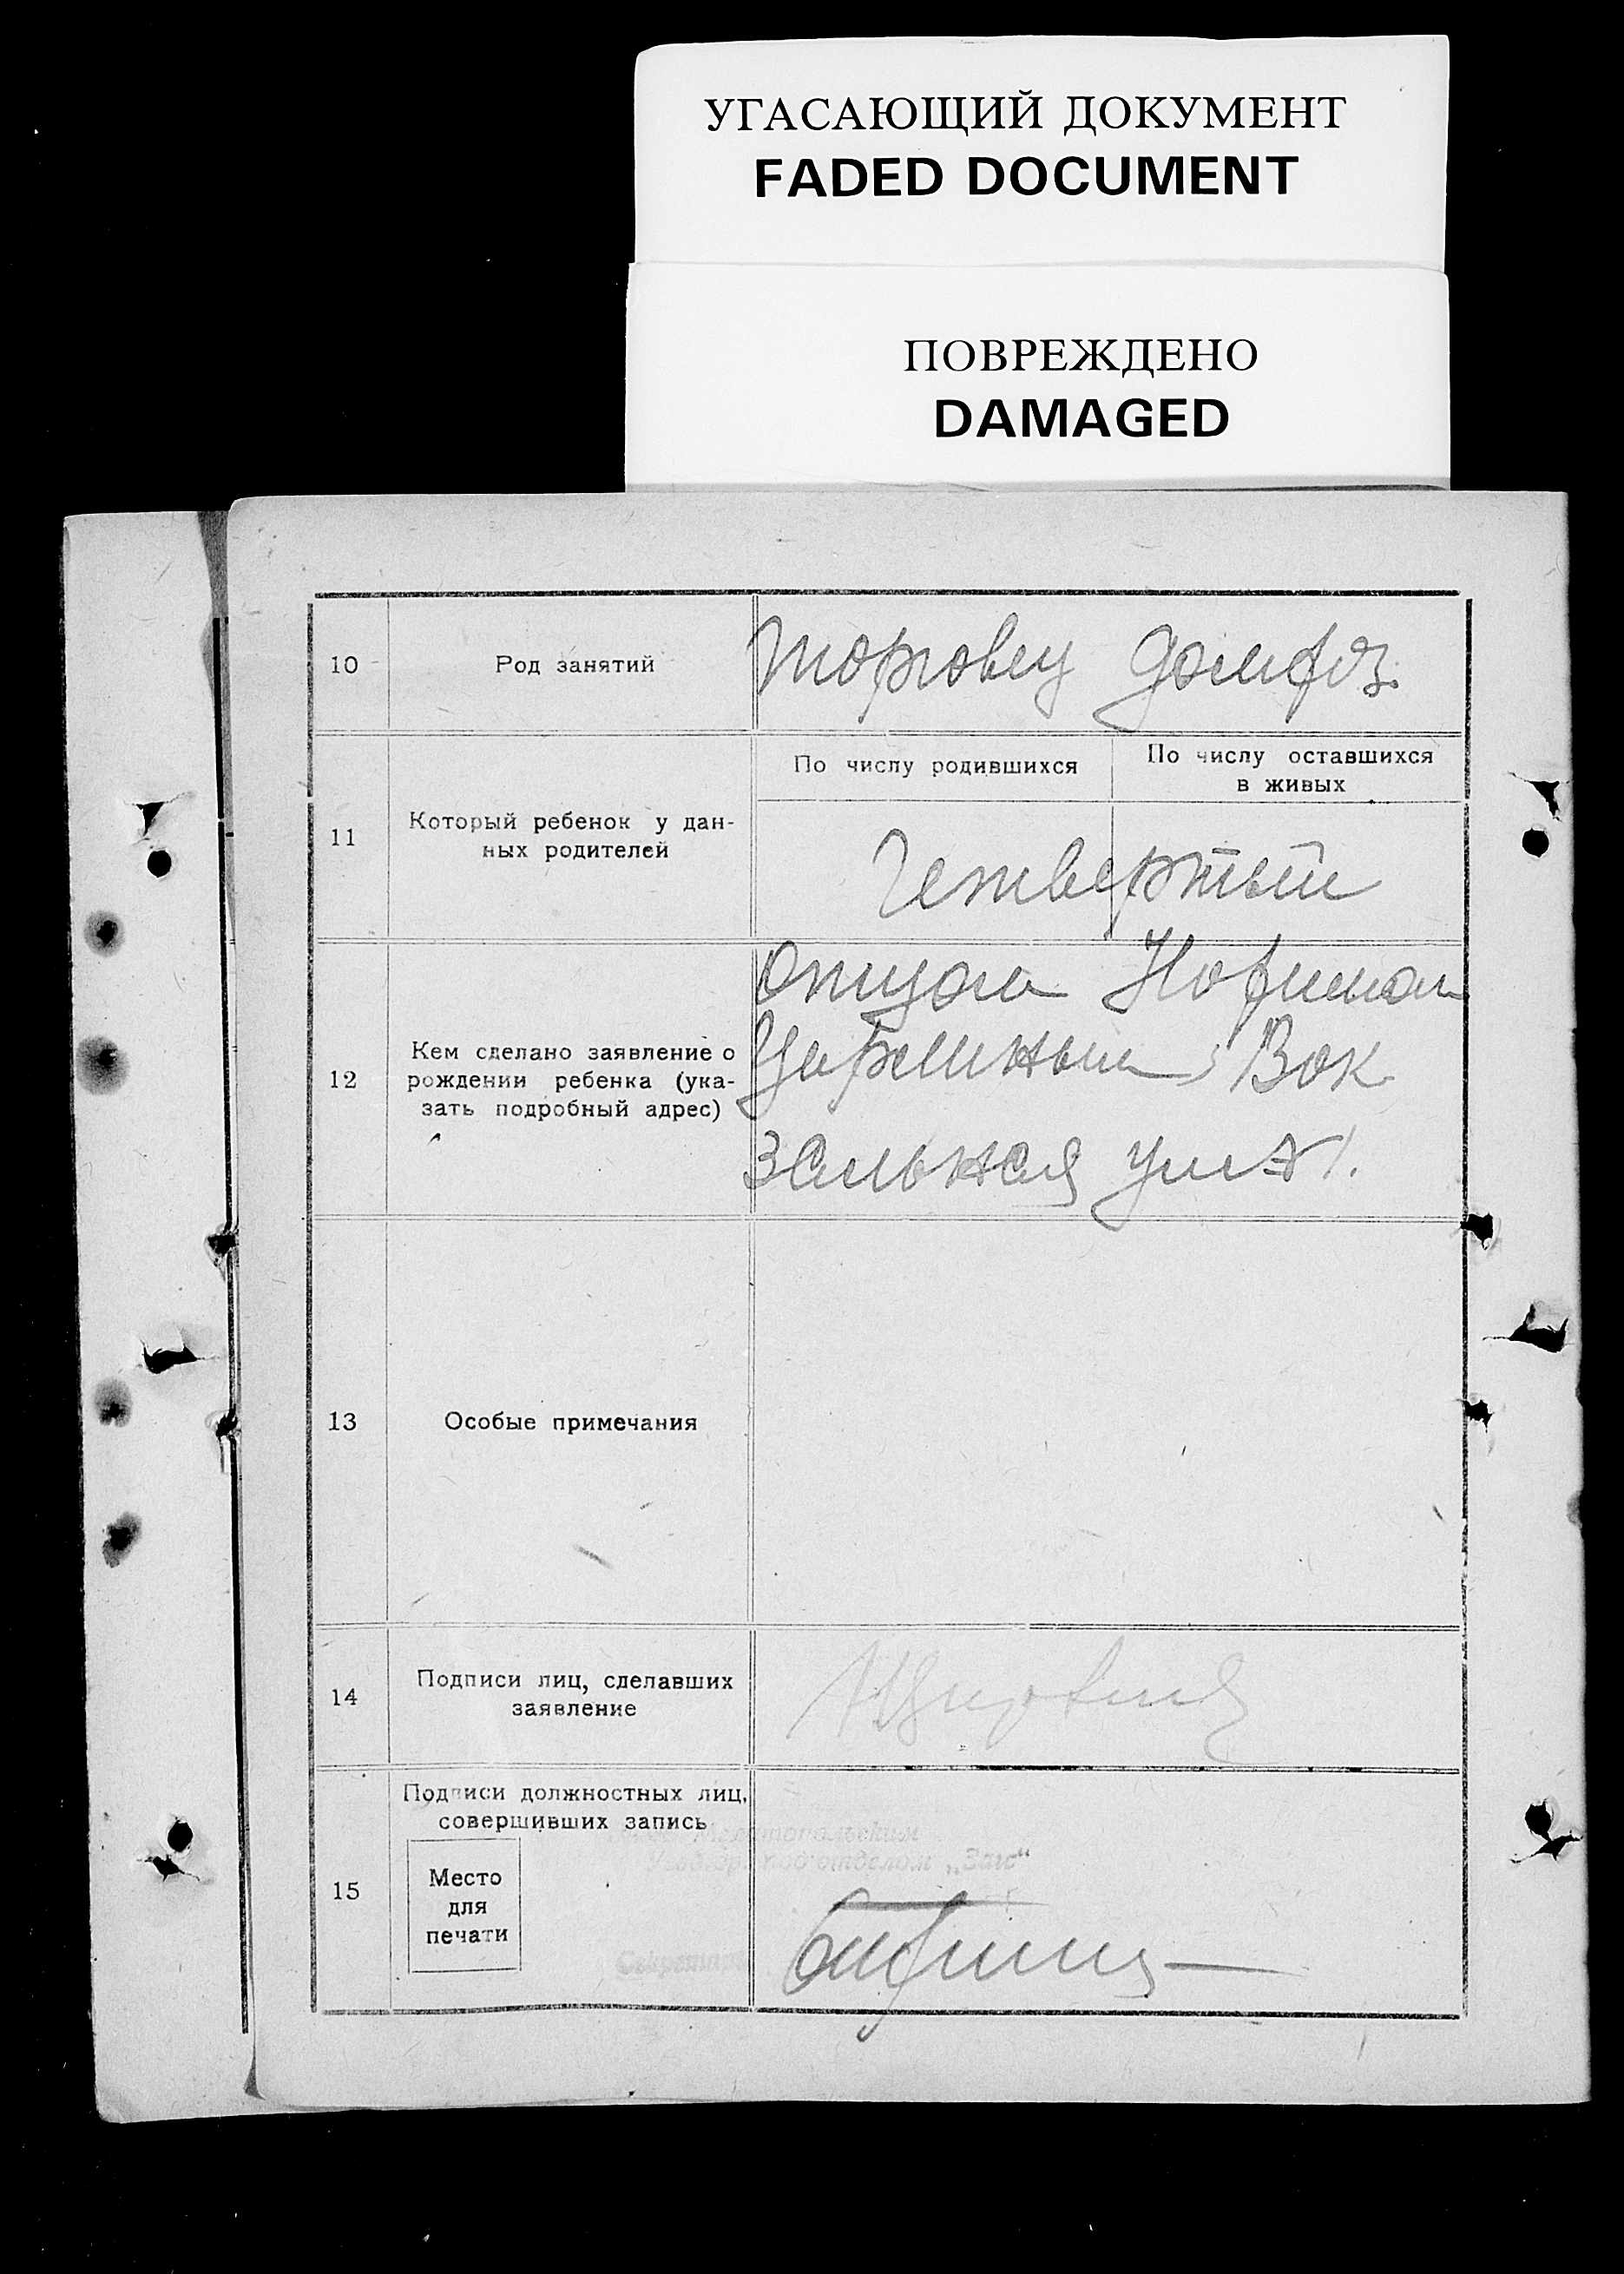 УГАСАЮЩИЙ ДОКУМЕНТ
FADED DOCUMENT
ПОВРЕЖДЕНО
DAMAGED
10
Род занятий
торговец
11
Который ребенок у дан-
ных родителей
По числу родившихся
По числу оставшихся
в живых
Четвертый
12
Кем сделано заявление о
рождении ребенка (ука-
зать подробный адрес)
отцом
Вок
зальная ул № 1.
13
Особые примечания
14
Подписи лиц, сделавших
заявление
15
Подписи должностных лиц,
совершивших запись
Место
для
печати
Мелитопольским
подотделом „Загс“